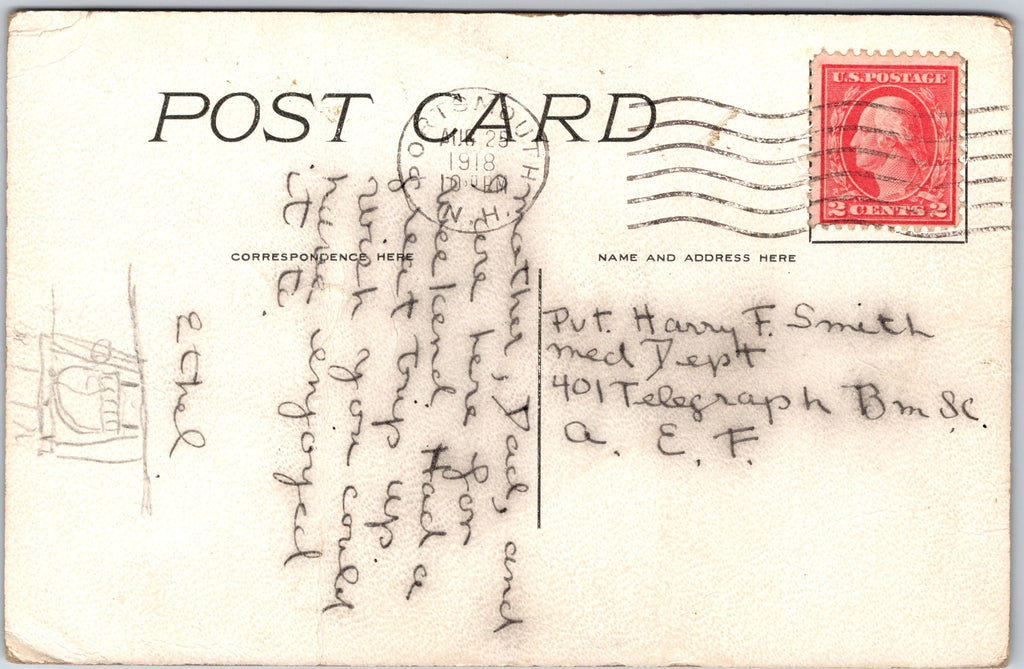 POST CARD
PORTSMOUTH
AUG 25
1918
N.H.
U.S. POSTAGE
2 CENTS 2
CORRESPONDENCE HERE
NAME AND ADDRESS HERE
Mother, Dad, and
I are here for
weekend Had a
great trip up
Wish you could
have enjoyed
it to
Ethel
Pvt. Harry F. Smith
Med Dept
401 Telegraph Bn S.C.
A. E. F.